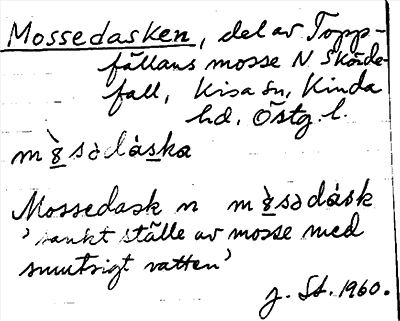 Mossedasken, del av Topp-
fällans mosse N Skörde-
fall, Kisa sn, Kinda
hd, Östg. l.
mòsədáska
Mossedask n mòsədásk
'sankt ställe av mosse med
smutsigt vatten'
J. St. 1960.